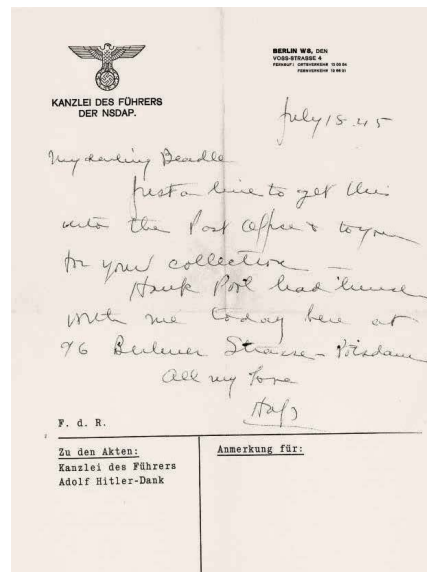 BERLIN W8, DEN
VOSS-STRASSE 4
FERNRUF: ORTSVERKEHR
FERNVERKEHR
KANZLEI DES FÜHRERS
DER NSDAP.
July 18.45
My darling Beadle
Just a line to get this
into the Post Office & to you
for your collection —
Hank had lunch
with me today here at
96 Berliner Strasse - Potsdam
All my love
Hap
F. d. R.
Zu den Akten:
Kanzlei des Führers
Adolf Hitler-Dank
Anmerkung für: